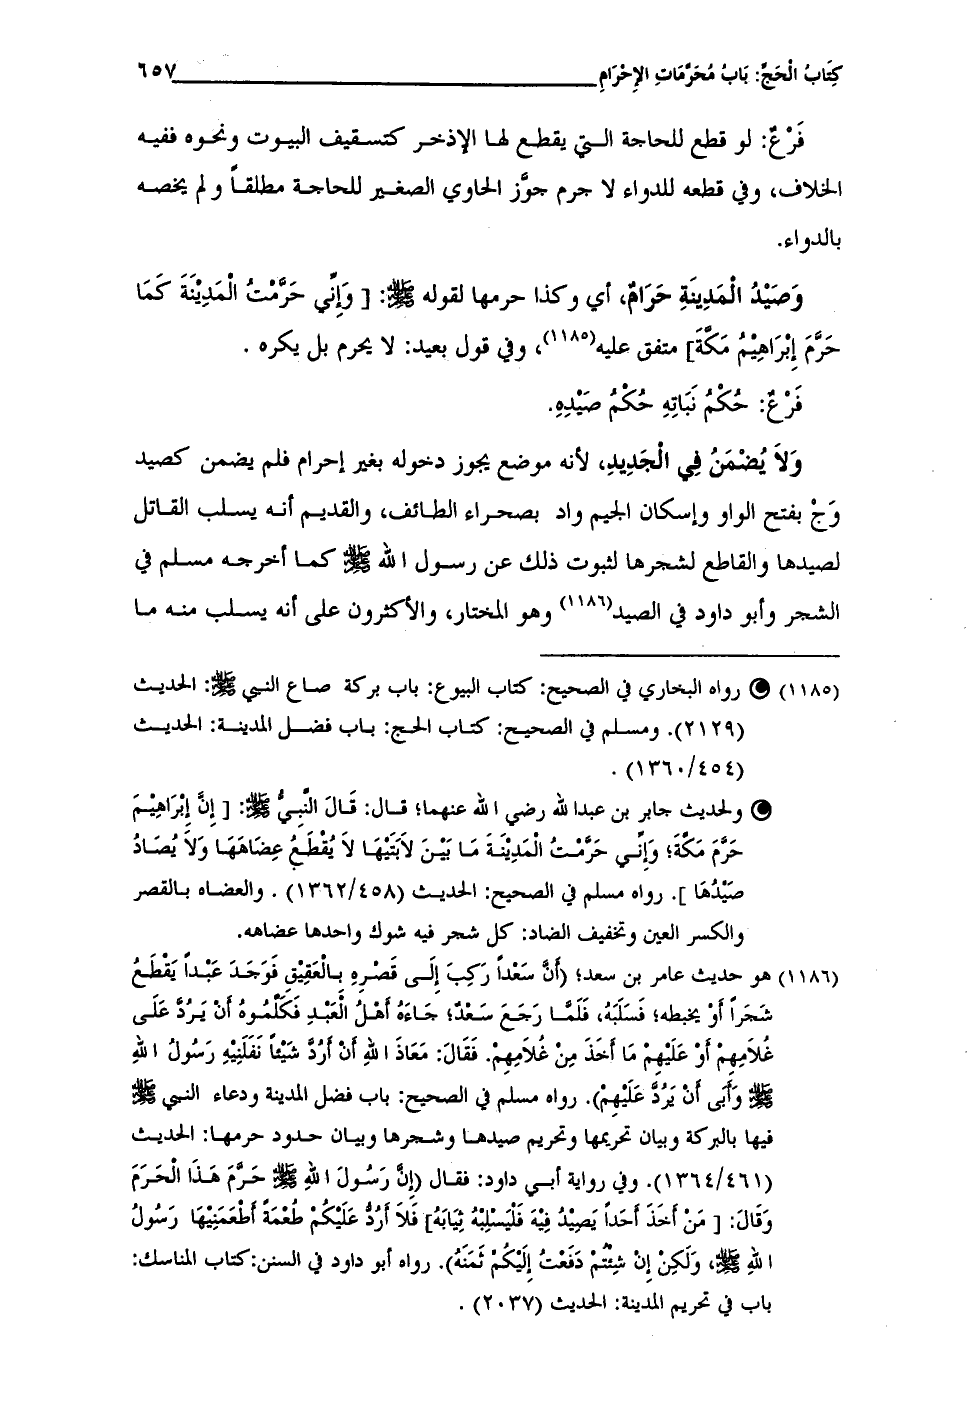 كِتَابُ الْحَجِّ: بَابُ مُحَرَّمَاتِ الإِحْرَامِ ٦٥٧
فَرْعٌ: لو قطع للحاجة التي يقطع لها الإذخر كتسقيف البيوت ونحوه ففيه
الخلاف، وفي قطعه للدواء لا جرم جوَّز الحاوي الصغير للحاجة مطلقاً ولم يخصه
بالدواء.
وَصَيْدُ الْمَدِينَةِ حَرَامٌ، أي وكذا حرمها لقوله ﷺ: [وَإِنِّي حَرَّمْتُ الْمَدِيْنَةَ كَمَا
حَرَّمَ إِبْرَاهِيْمُ مَكَّةَ] متفق عليه(١١٨٥)، وفي قول بعيد: لا يحرم بل يكره.
فَرْعٌ: حُكْمُ نَبَاتِهِ حُكْمُ صَيْدِهِ.
وَلاَ يُضْمَنُ فِي الْجَدِيدِ، لأنه موضع يجوز دخوله بغير إحرام فلم يضمن كصيد
وَجْ بفتح الواو وإسكان الجيم واد بصحراء الطائف، والقديم أنه يسلب القاتل
لصيدها والقاطع لشجرها لثبوت ذلك عن رسول الله ﷺ كما أخرجه مسلم في
الشجر وأبو داود في الصيد(١١٨٦) وهو المختار، والأكثرون على أنه يسلب منه ما
(١١٨٥) رواه البخاري في الصحيح: كتاب البيوع: باب بركة صاع النبي ﷺ: الحديث
(٢١٢٩). ومسلم في الصحيح: كتاب الحج: باب فضل المدينة: الحديث
(١٣٦٠/٤٥٤).
ولحديث جابر بن عبدالله رضي الله عنهما؛ قال: قَالَ النَّبِيُّ ﷺ: [إِنَّ إِبْرَاهِيْمَ
حَرَّمَ مَكَّةَ؛ وَإِنِّي حَرَّمْتُ الْمَدِيْنَةَ مَا بَيْنَ لاَبَتَيْهَا لاَ يُقْطَعُ عِضَاهَهَا وَلاَ يُصَادُ
صَيْدُهَا]. رواه مسلم في الصحيح: الحديث (١٣٦٢/٤٥٨). والعضاه بالقصر
والكسر العين وتخفيف الضاد: كل شجر فيه شوك واحدها عضاهه.
(١١٨٦) هو حديث عامر بن سعد؛ (أَنَّ سَعْداً رَكِبَ إِلَى قَصْرِهِ بِالْعَقِيْقِ فَوَجَدَ عَبْداً يَقْطَعُ
شَجَراً أَوْ يخبطه؛ فَسَلَبَهُ، فَلَمَّا رَجَعَ سَعْدٌ؛ جَاءَهُ أَهْلُ الْعَبْدِ فَكَلَّمُوهُ أَنْ يَرُدَّ عَلَى
غُلاَمِهِمْ أَوْ عَلَيْهِمْ مَا أَخَذَ مِنْ غُلاَمِهِمْ. فَقَالَ: مَعَاذَ اللهِ أَنْ أَرُدَّ شَيْئاً نَفَلَنِيْهِ رَسُولُ اللهِ
ﷺ وَأَبَى أَنْ يَرُدَّ عَلَيْهِمْ). رواه مسلم في الصحيح: باب فضل المدينة ودعاء النبي ﷺ
فيها بالبركة وبيان تحريمها وتحريم صيدها وشجرها وبيان حدود حرمها: الحديث
(١٣٦٤/٤٦١). وفي رواية أبي داود: فقال (إِنَّ رَسُولَ اللهِ ﷺ حَرَّمَ هَذَا الْحَرَمَ
وَقَالَ: [مَنْ أَخَذَ أَحَداً يَصِيْدُ فِيْهِ فَلْيَسْلِبْهُ ثِيَابَهُ] فَلاَ أَرُدُّ عَلَيْكُمْ طُعْمَةً أَطْعَمَنِيْهَا رَسُولُ
اللهِ ﷺ، وَلَكِنْ إِنْ شِئْتُمْ دَفَعْتُ إِلَيْكُمْ ثَمَنَهُ). رواه أبو داود في السنن:كتاب المناسك:
باب في تحريم المدينة: الحديث (٢٠٣٧).